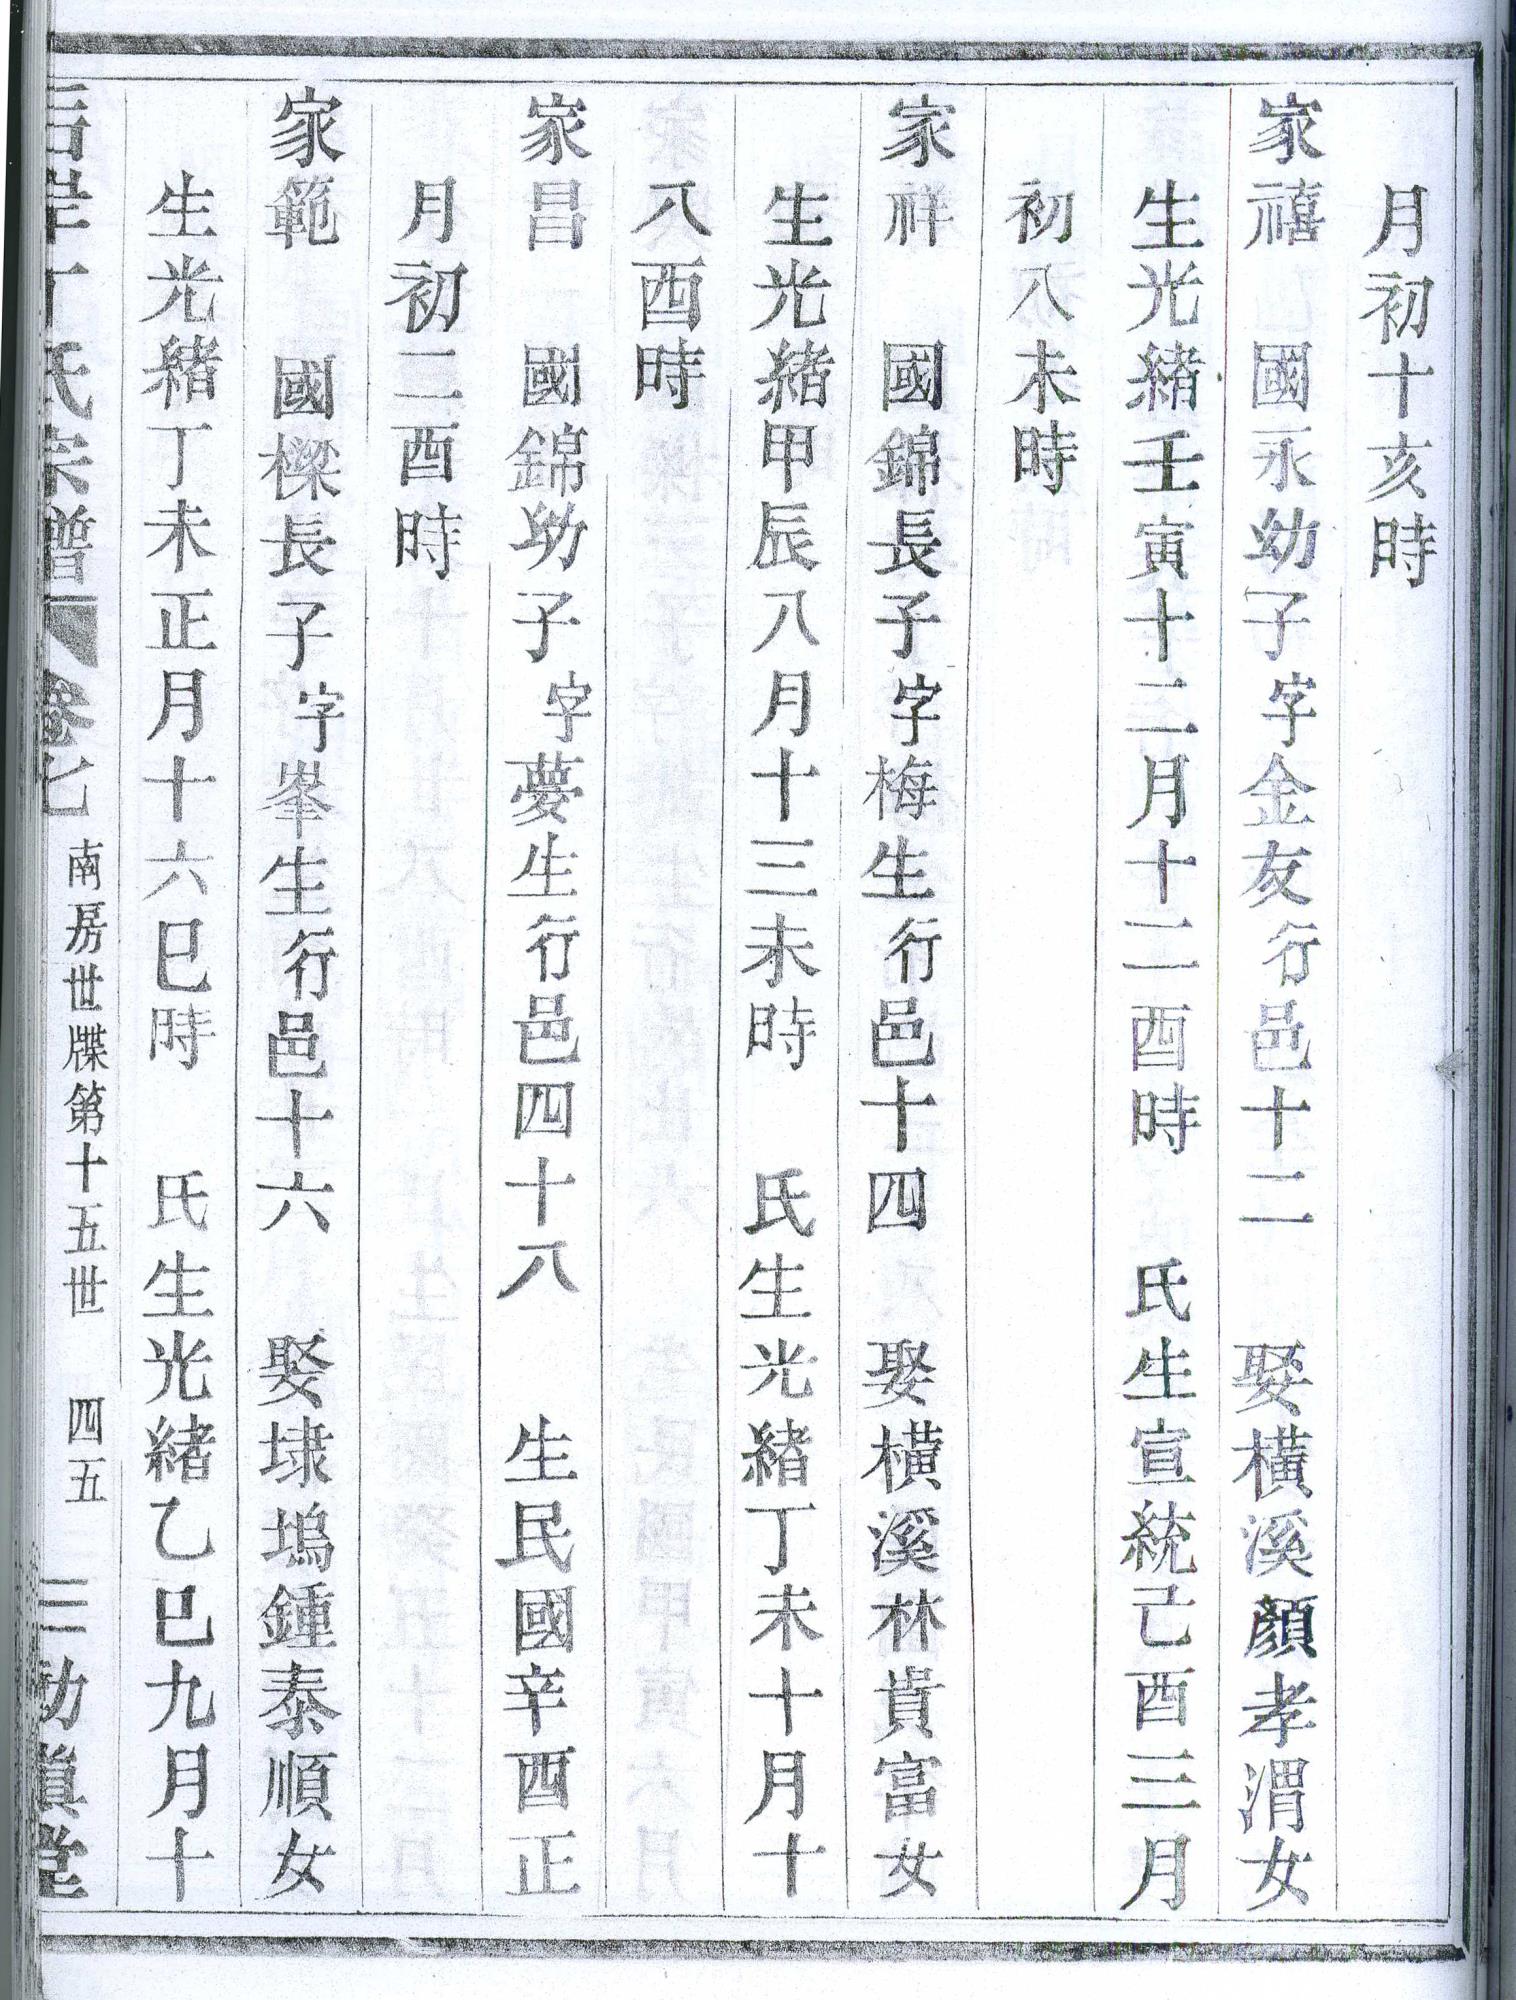 月初十亥時
家禧　國永幼子字金友行邑十二　娶橫溪顏孝渭女
生光緒壬寅十二月十二酉時　氏生宣統己酉三月
初八未時
家祥　國錦長子字梅生行邑十四　娶橫溪林貴富女
生光緒甲辰八月十三未時　氏生光緒丁未十月十
八酉時
家昌　國錦幼子字夢生行邑四十八　生民國辛酉正
月初二酉時
家範　國樑長子字峯生行邑十六　娶埭塢鍾泰順女
生光緒丁未正月十六巳時　氏生光緒乙巳九月十
丁氏宗譜　卷七　南房世牒第十五世　四五　堂